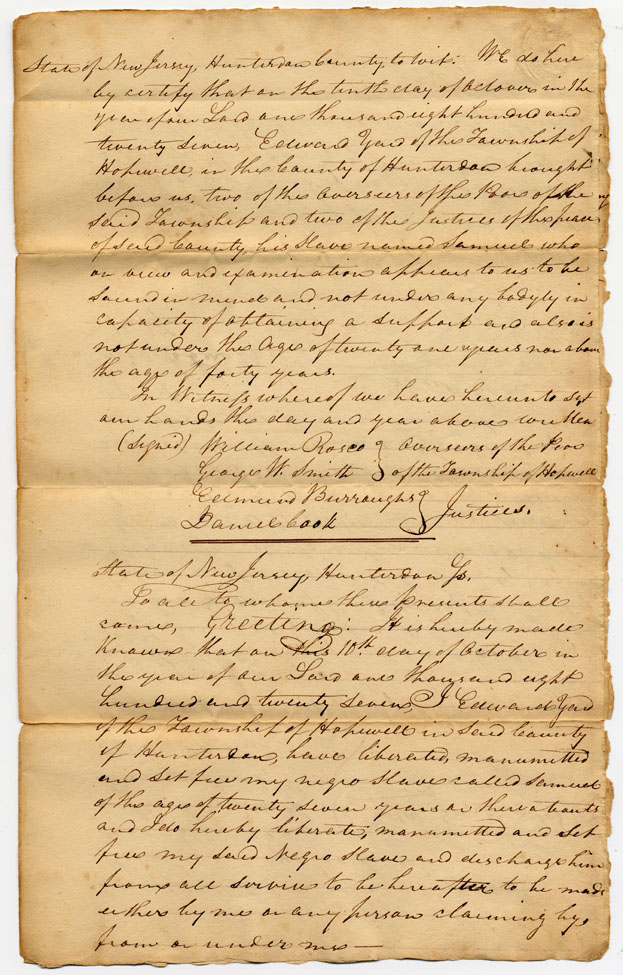 State of New Jersey, Hunterdon County, to wit: We do here
by certify that on the tenth day of October in the
year of our Lord one thousand eight hundred and
twenty seven, Edward Yard of the Township of
Hopewell, in the County of Hunterdon brought
before us. two of the Overseers of the Poor of the
said Township and two of the Justices of the peace
of said County, his slave named Samuel who
on view and examination appears to us to be
sound in mind and not under any bodyly in
capacity of obtaining a support and also is
not under the age of twenty one years nor above
the age of forty years.
In Witness whereof we have hereunto set
our hands the day and year above written
(signed) William Rosco } Overseers of the Poor
George W. Smith } of the Township of Hopewell
Edmund Burroughs }
Daniel Cook } Justices.
State of New Jersey, Hunterdon Ss.
To all to whome these presents shall
come, Greeting: It is hereby made
Known that on this 10th day of October in
the year of our Lord one thousand eight
hundred and twenty seven, I Edward Yard
of the Township of Hopewell in said County
of Hunterdon, have liberated, manumitted
and set free my negro slave called Samuel
of the age of twenty seven years or thereabouts
and I do hereby liberate, manumitted and set
free my said Negro Slave and discharge him
from all service to be hereafter to be made
either by me or any person claiming by,
from or under me —